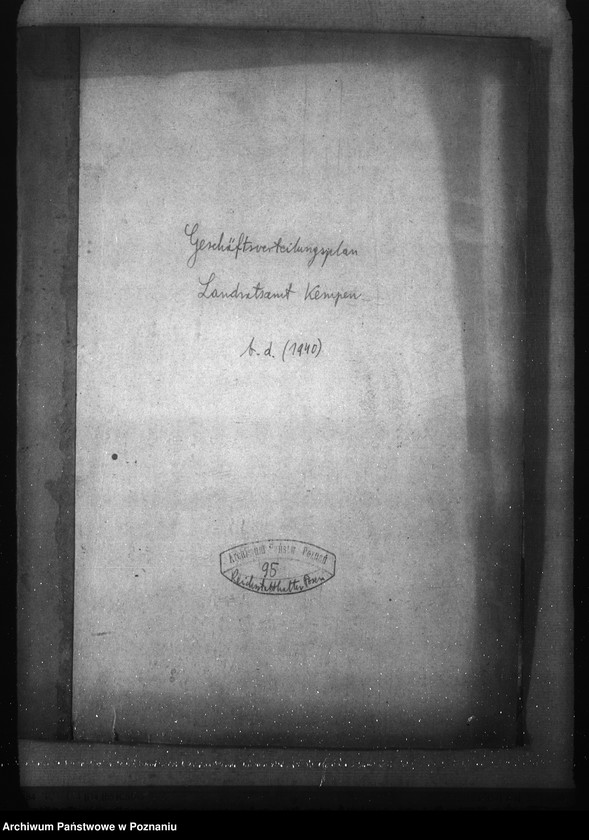 Geschäftsverteilungsplan
Landratsamt Kempen
b. d. (1940)
Archiwum Państw. Poznań
95
Reichsstatthalter Posen
Archiwum Państwowe w Poznaniu